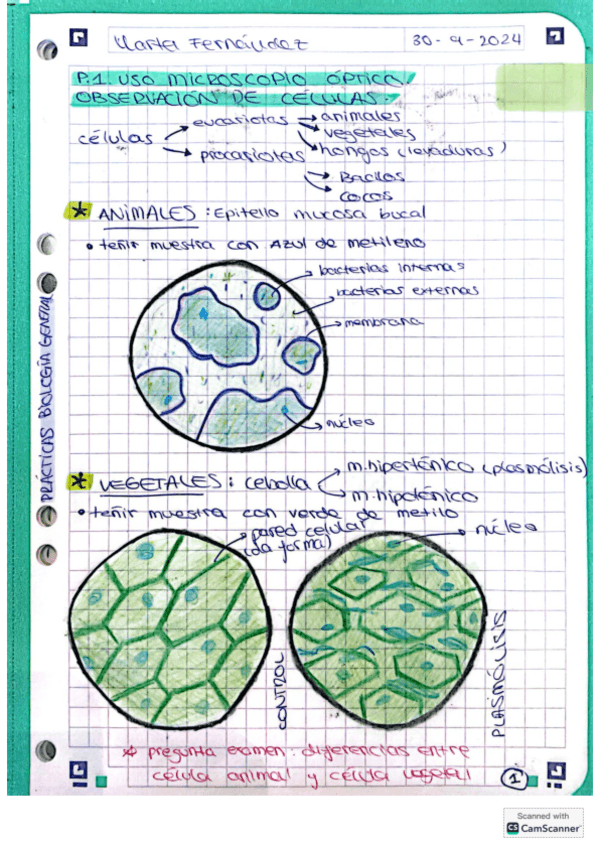 Marta Fernández 30-9-2024
P.1. USO MICROSCOPIO ÓPTICO/
OBSERVACIÓN DE CÉLULAS.
células eucariotas animales
vegetales
hongos (levaduras)
procariotas Bacilos
cocos
* ANIMALES: Epitelio mucosa bucal
• teñir muestra con Azul de metileno
bacterias internas
bacterias externas
membrana
núcleo
PRÁCTICAS BIOLOGÍA GENERAL
* VEGETALES: cebolla m.hipertónico (plasmólisis)
m.hipotónico
• teñir muestra con verde de metilo
pared celular
(da forma)
núcleo
CONTROL
PLASMÓLISIS
* pregunta examen: diferencias entre
célula animal y célula vegetal
1
Scanned with
CS CamScanner